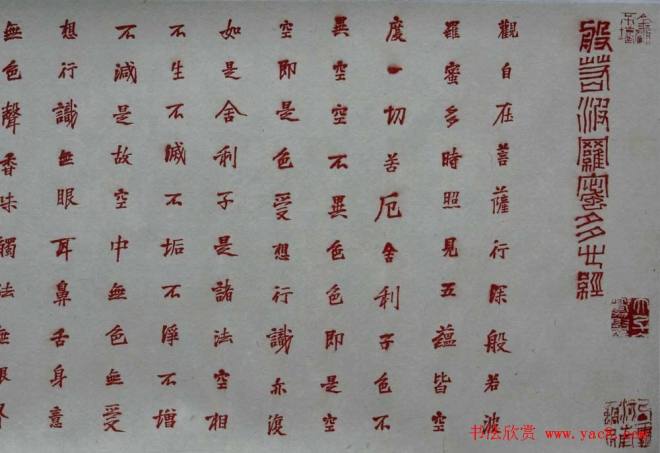 般若波羅蜜多心經
觀自在菩薩行深般若波
羅蜜多時照見五蘊皆空
度一切苦厄舍利子色不
異空空不異色色即是空
空即是色受想行識亦復
如是舍利子是諸法空相
不生不滅不垢不淨不增
不減是故空中無色無受
想行識無眼耳鼻舌身意
無色聲香味觸法無眼界
书法欣赏 www.yac8.com